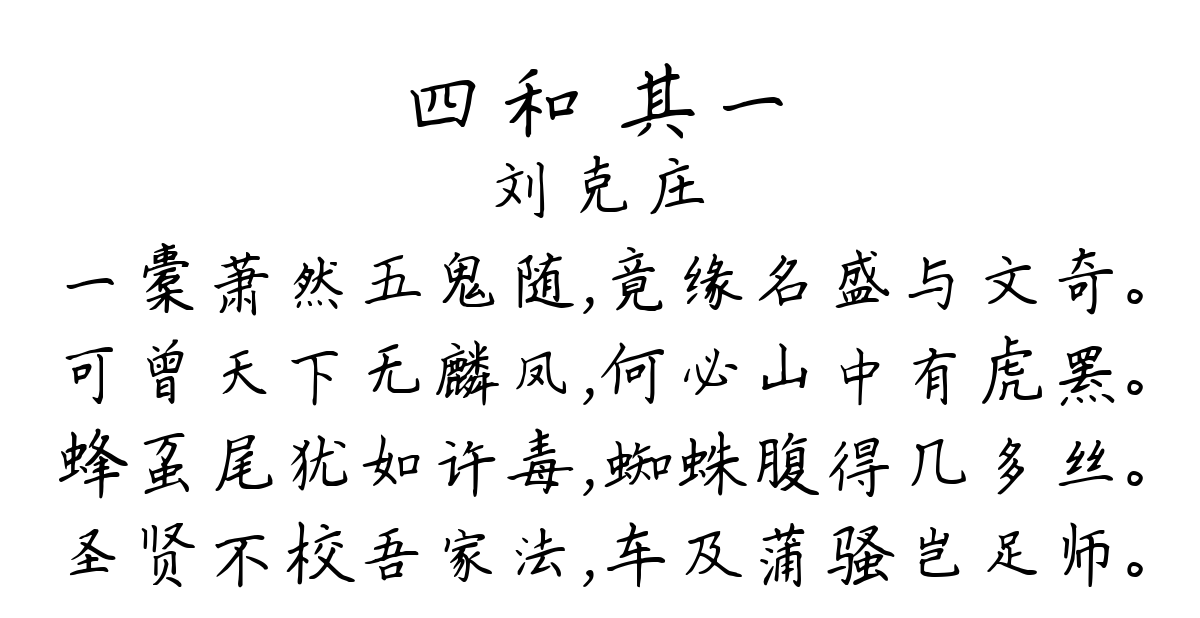 四和 其一
刘克庄
一橐萧然五鬼随,竟缘名盛与文奇。
可曾天下无麟凤,何必山中有虎罴。
蜂虿尾犹如许毒,蜘蛛腹得几多丝。
圣贤不校吾家法,车及蒲骚岂足师。